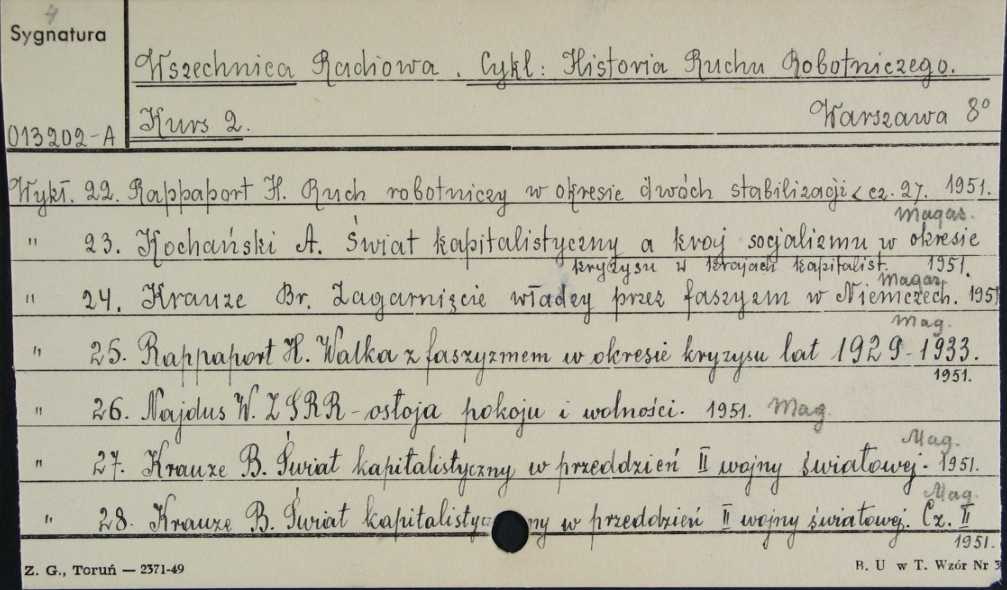 4
Sygnatura
Wszechnica Radiowa. Cykl: Historia Ruchu Robotniczego.
013202-A Kurs 2. Warszawa 8°
Wykł. 22. Rappaport H. Ruch robotniczy w okresie dwóch stabilizacji cz. 27. 1951.
Magaz.
" 23. Kochański A. Świat kapitalistyczny a kraj socjalizmu w okresie
kryzysu w krajach kapitalist. 1951.
Magaz.
" 24. Krauze Br. Zagarnięcie władzy przez faszyzm w Niemczech. 1951
Mag.
" 25. Rappaport H. Walka z faszyzmem w okresie kryzysu lat 1929-1933.
1951.
" 26. Najdus W. ZSRR - ostoja pokoju i wolności. 1951. Mag.
Mag.
" 27. Krauze B. Świat kapitalistyczny w przeddzień II wojny światowej. 1951.
Mag.
" 28. Krauze B. Świat kapitalistyczny w przeddzień II wojny światowej. Cz. II
1951.
Z. G., Toruń — 2371-49 B. U w T. Wzór Nr 3